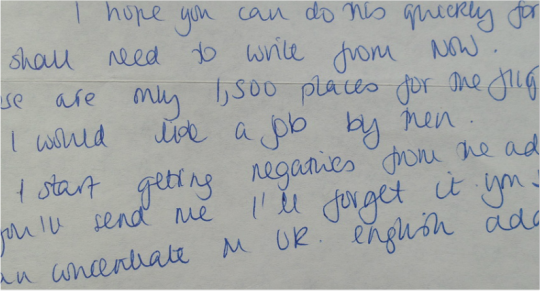 I hope you can do this quickly for
shall need to write from now.
se are only 1,500 places for the
I would like a job by then.
I start getting negatives from the ad
you'll send me I'll forget it
an concentrate on UK. english add